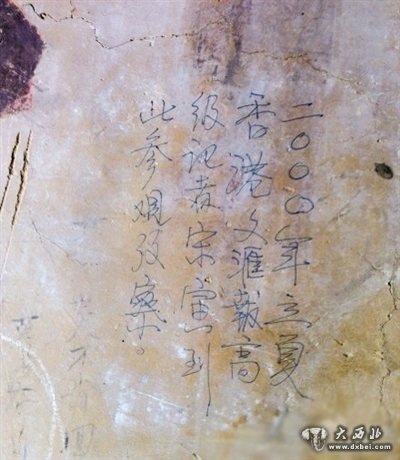 二〇〇〇年立夏
香港文滙報高
级记者宋寅到
此参观攷察。
大西北
www.dxbei.com